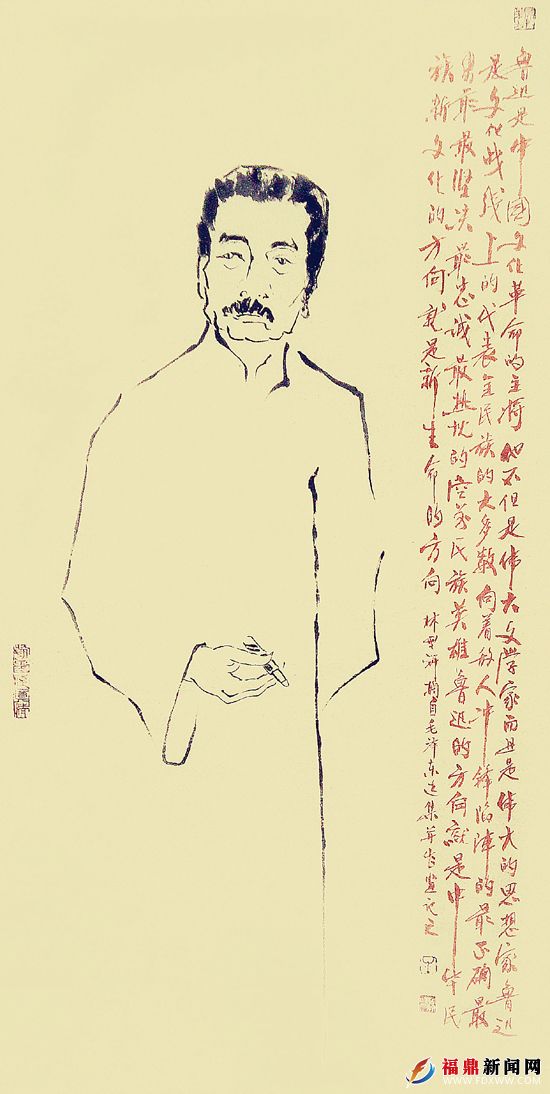 鲁迅是中國文化革命的主将他不但是伟大文学家而且是伟大的思想家鲁迅
是文化战线上的代表全民族的大多数向着敌人冲锋陷阵的最正确最
勇敢最坚决最忠诚最热忱的空前民族英雄鲁迅的方向就是中华民
族新文化的方向就是新生命的方向 林 摘自毛泽东选集并书画记之
福鼎新闻网
WWW.FDXWW.COM